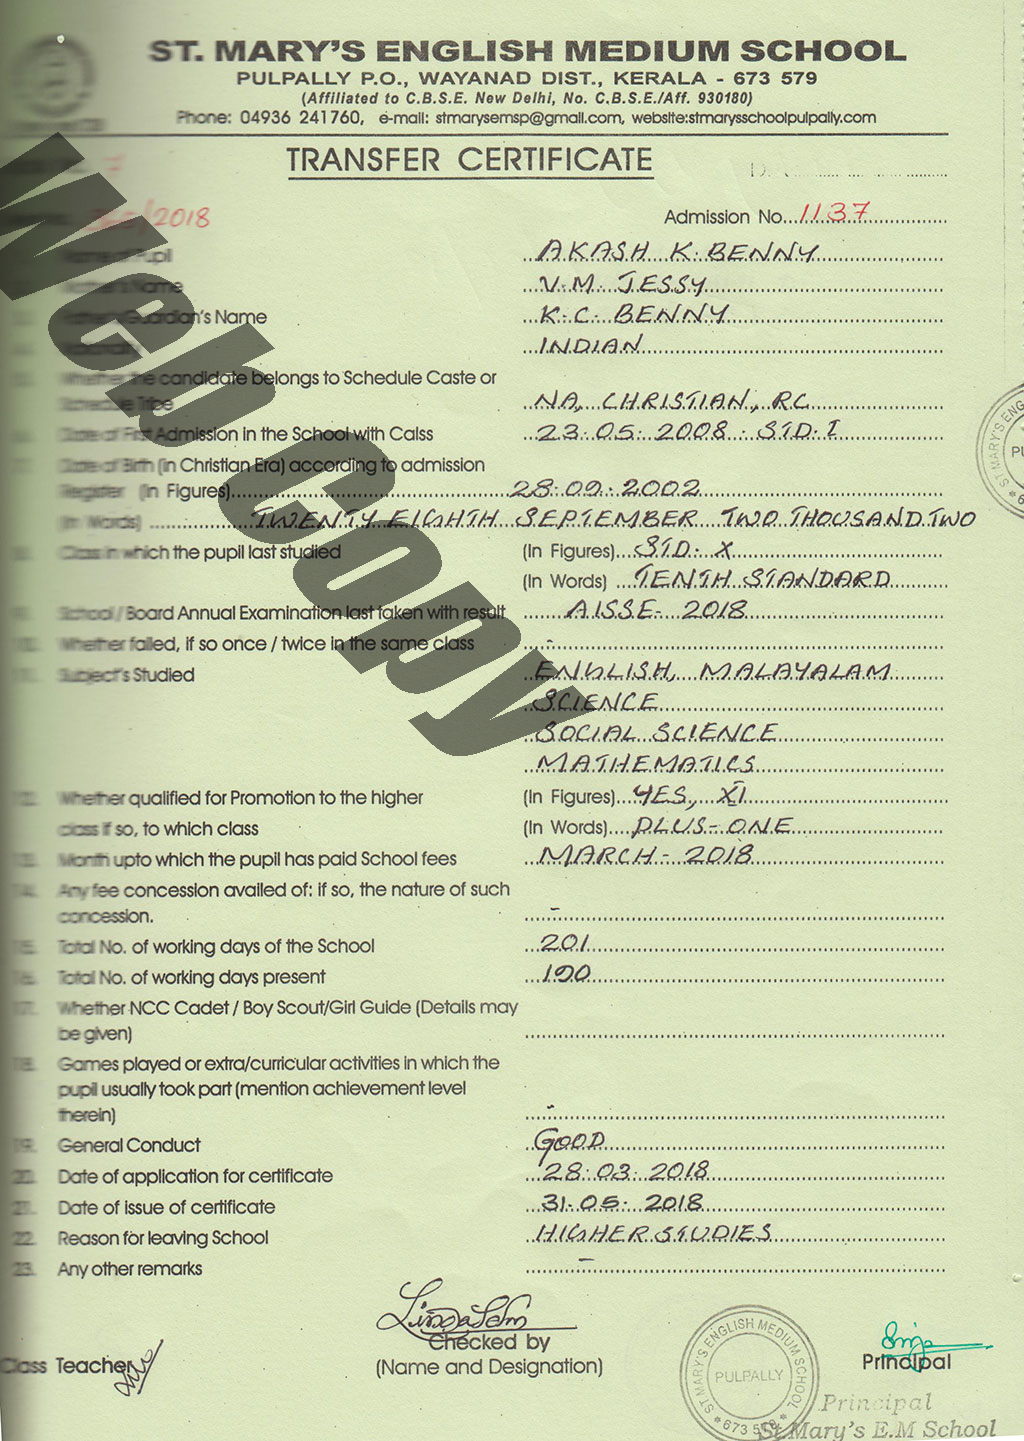 ST. MARY'S ENGLISH MEDIUM SCHOOL
PULPALLY P.O., WAYANAD DIST., KERALA - 673 579
(Affiliated to C.B.S.E. New Delhi, No. C.B.S.E./Aff. 930180)
Phone: 04936 241760, e-mail: stmarysemsp@gmail.com, website:stmarysschoolpulpally.com
TRANSFER CERTIFICATE
/2018 Admission No. 1137
Name of Pupil AKASH K. BENNY
Name V.M. JESSY
Guardian's Name K.C. BENNY
INDIAN
Whether the candidate belongs to Schedule Caste or
Schedule Tribe NA, CHRISTIAN, RC
Date of First Admission in the School with Calss 23.05.2008. STD. I
Date of Birth (in Christian Era) according to admission
Register (In Figures) 28.09.2002
(In Words) TWENTY EIGHTH SEPTEMBER TWO THOUSAND TWO
Class in which the pupil last studied (In Figures) STD. X
(In Words) TENTH STANDARD
School / Board Annual Examination last taken with result AISSE - 2018
10. Whether failed, if so once / twice in the same class -
11. Subject's Studied ENGLISH, MALAYALAM
SCIENCE
SOCIAL SCIENCE
MATHEMATICS
12. Whether qualified for Promotion to the higher (In Figures) YES, XI
class if so, to which class (In Words) PLUS-ONE
13. Month upto which the pupil has paid School fees MARCH - 2018
14. Any fee concession availed of: if so, the nature of such
concession. -
15. Total No. of working days of the School 201
16. Total No. of working days present 190
17. Whether NCC Cadet / Boy Scout/Girl Guide (Details may
be given)
18. Games played or extra/curricular activities in which the
pupil usually took part (mention achievement level
therein) -
19. General Conduct GOOD
20. Date of application for certificate 28.03.2018
21. Date of issue of certificate 31.05.2018
22. Reason for leaving School HIGHER STUDIES
23. Any other remarks -
Class Teacher Checked by Principal
(Name and Designation)
ST MARY'S ENGLISH MEDIUM SCHOOL
PULPALLY
* 673 579 *
Principal
St.Mary's E.M School
Web Copy